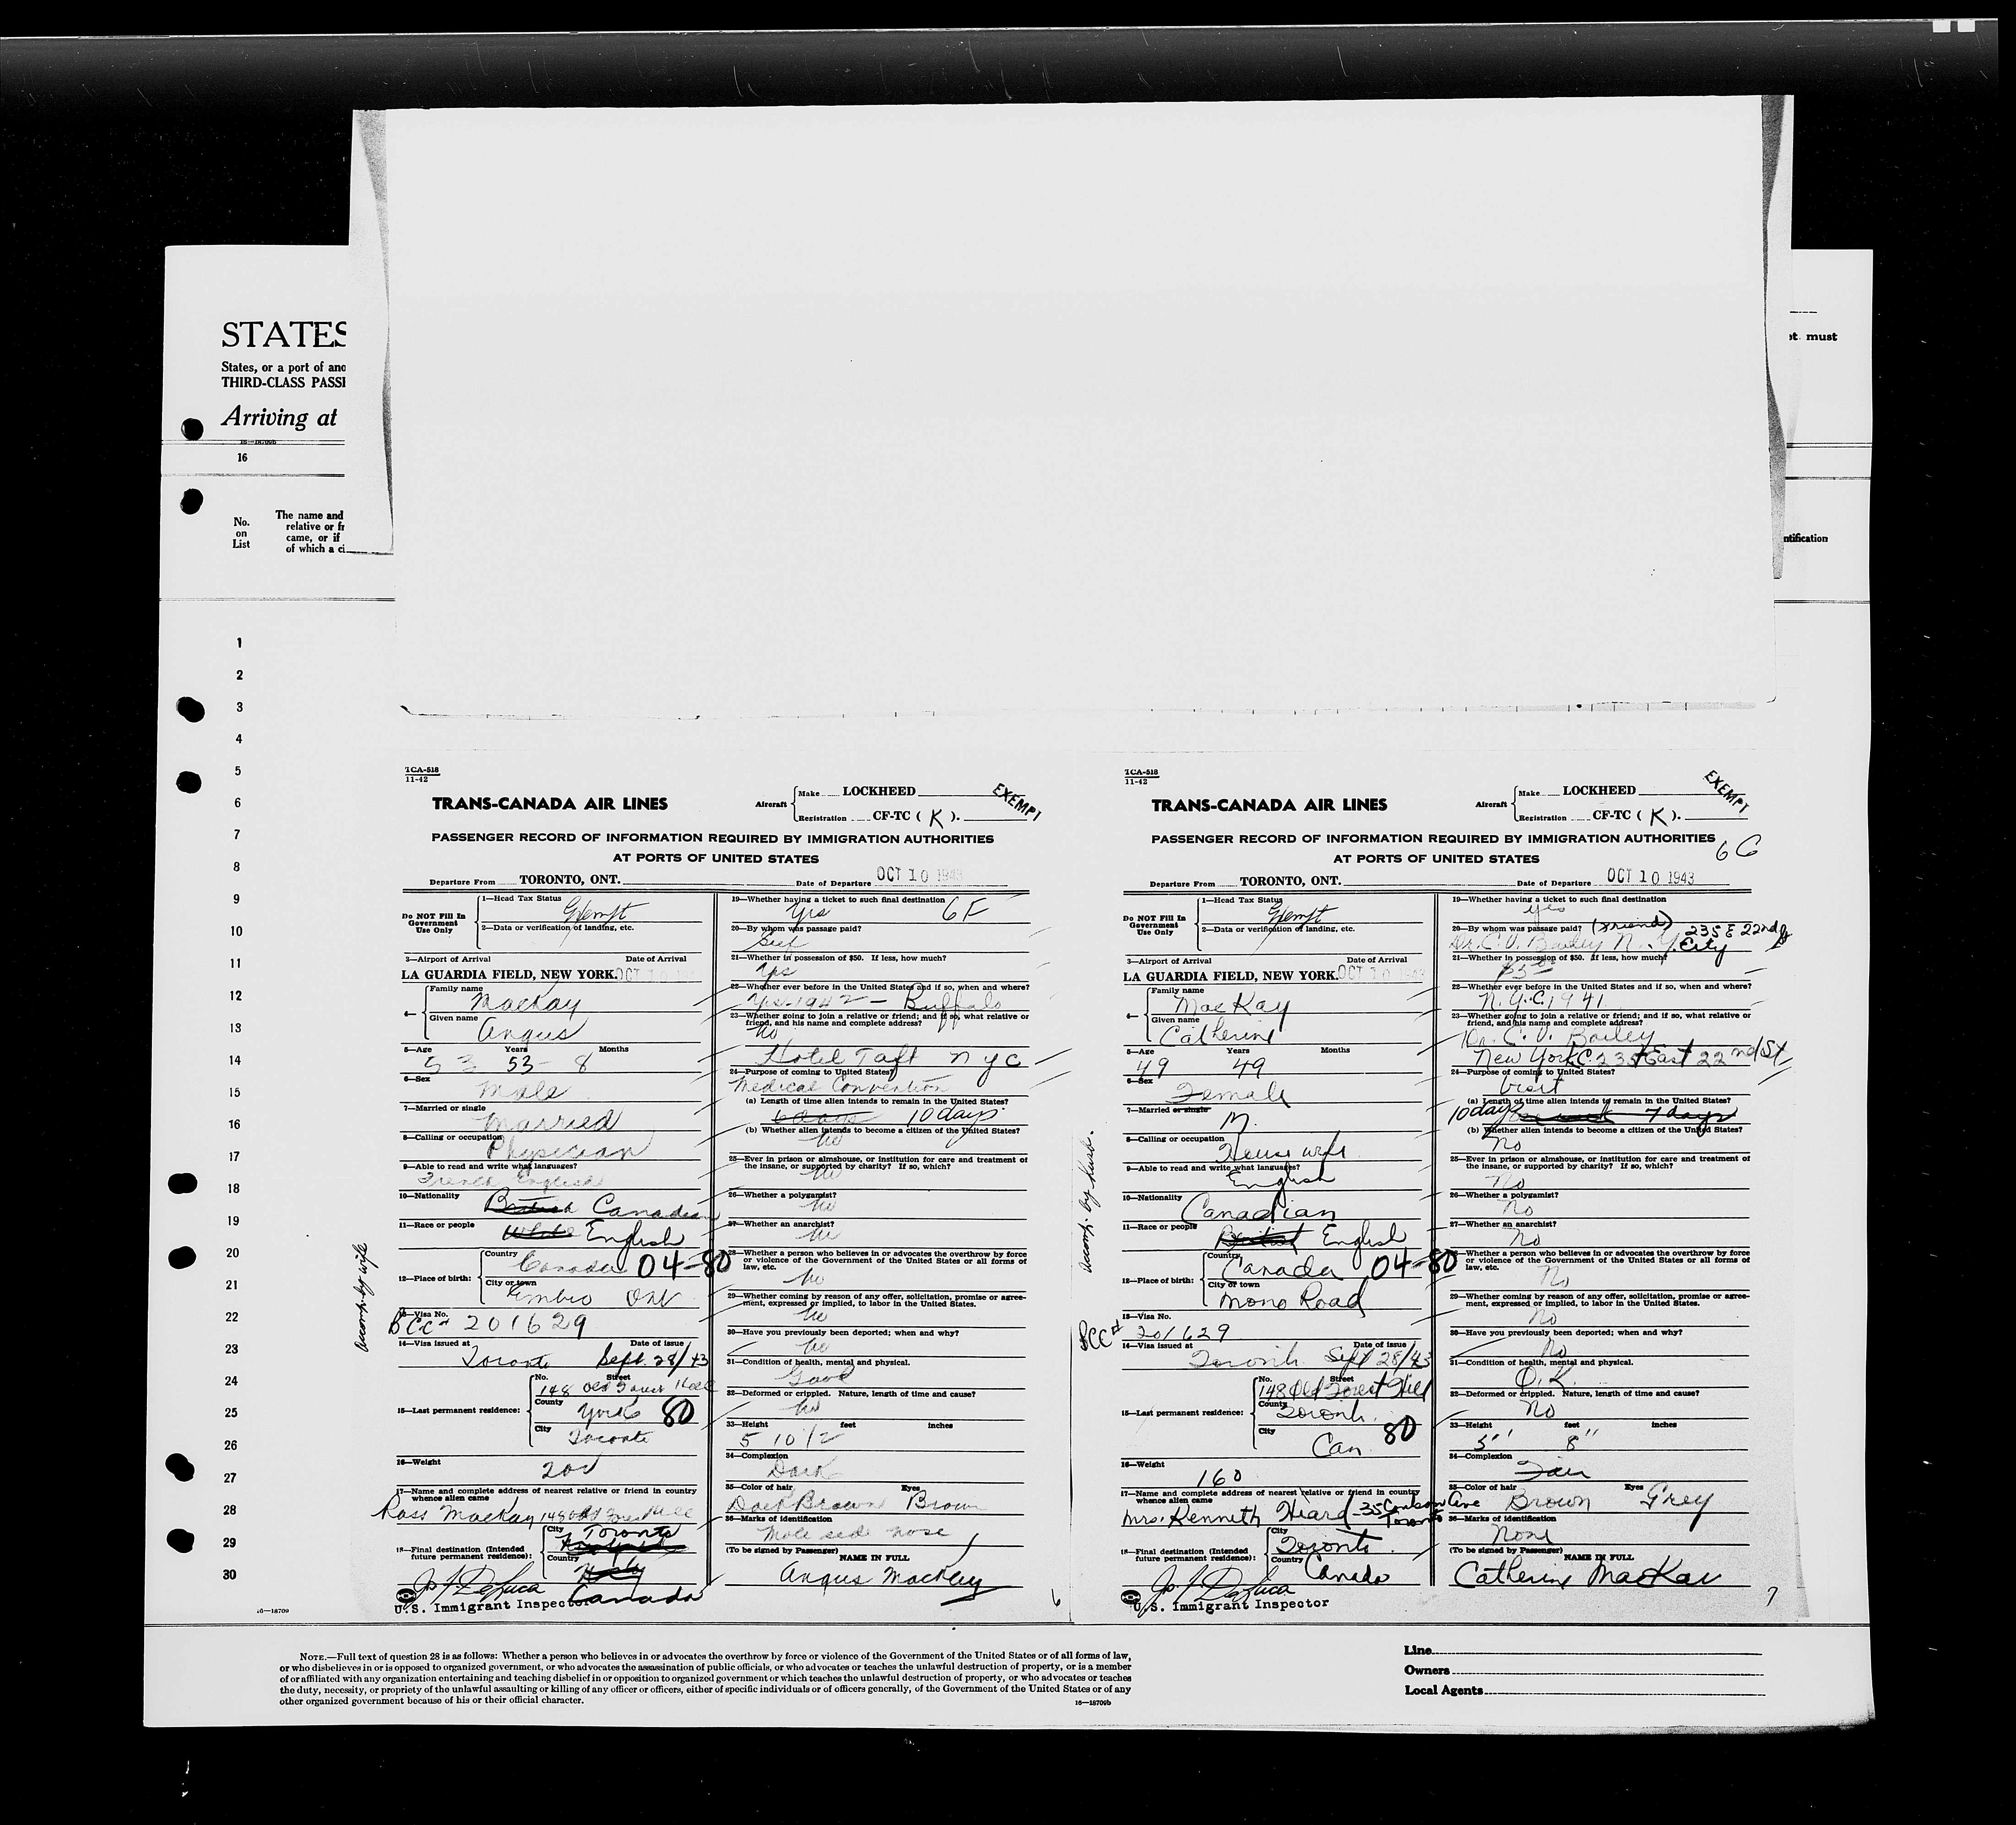 STATES
States, or a port of
THIRD-CLASS
Arriving at
16—18709b
16
No.
on
List
The name and
relative or
came, or if
of which a
must
1
2
3
4
5
6
7
8
9
10
11
12
13
14
15
16
17
18
19
20
21
22
23
24
25
26
27
28
29
30
16—18709
accomp. by wife
TCA-518
11-42
TRANS-CANADA AIR LINES
Aircraft
Make LOCKHEED
Registration CF-TC ( K ).
EXEMPT
PASSENGER RECORD OF INFORMATION REQUIRED BY IMMIGRATION AUTHORITIES
AT PORTS OF UNITED STATES
Departure From TORONTO, ONT.
Date of Departure OCT 10 1943
Do NOT Fill In
Government
Use Only
1—Head Tax Status
Exempt
2—Data or verification of landing, etc.
3—Airport of Arrival Date of Arrival
LA GUARDIA FIELD, NEW YORK. OCT 10
4— Family name
MacKay
Given name
Angus
5—Age Years Months
53 53 - 8
6—Sex
Male
7—Married or single
Married
8—Calling or occupation
Physician
9—Able to read and write what languages?
French English
10—Nationality
British Canadian
11—Race or people
White English
12—Place of birth:
Country
Canada 04-80
City or town
Ont
13—Visa No.
BCC# 201629
14—Visa issued at Date of issue
Toronto Sept. 28/43
15—Last permanent residence:
No. Street
148 Old Forest Hill
County
York 80
City
Toronto
16—Weight
200
17—Name and complete address of nearest relative or friend in country
whence alien came
Ross MacKay 148 Old Forest Hill
18—Final destination (Intended
future permanent residence):
City
Toronto
Country
Canada
U.S. Immigrant Inspector
19—Whether having a ticket to such final destination
Yes 6F
20—By whom was passage paid?
Self
21—Whether in possession of $50. If less, how much?
Yes
22—Whether ever before in the United States and if so, when and where?
Yes-1942 - Buffalo
23—Whether going to join a relative or friend; and if so, what relative or
friend, and his name and complete address?
No
Hotel Taft NYC
24—Purpose of coming to United States?
Medical Convention
(a) Length of time alien intends to remain in the United States?
6 days 10 days
(b) Whether alien intends to become a citizen of the United States?
No
25—Ever in prison or almshouse, or institution for care and treatment of
the insane, or supported by charity? If so, which?
No
26—Whether a polygamist?
No
27—Whether an anarchist?
No
28—Whether a person who believes in or advocates the overthrow by force
or violence of the Government of the United States or all forms of
law, etc.
No
29—Whether coming by reason of any offer, solicitation, promise or agree-
ment, expressed or implied, to labor in the United States.
No
30—Have you previously been deported; when and why?
No
31—Condition of health, mental and physical.
Good
32—Deformed or crippled. Nature, length of time and cause?
No
33—Height feet inches
5 10 1/2
34—Complexion
Dark
35—Color of hair Eyes
Dark Brown Brown
36—Marks of identification
Mole side nose
(To be signed by Passenger)
NAME IN FULL
Angus MacKay
6
accomp. by husb.
TCA-518
11-42
TRANS-CANADA AIR LINES
Aircraft
Make LOCKHEED
Registration CF-TC ( K ).
EXEMPT
PASSENGER RECORD OF INFORMATION REQUIRED BY IMMIGRATION AUTHORITIES
AT PORTS OF UNITED STATES
6C
Departure From TORONTO, ONT.
Date of Departure OCT 10 1943
Do NOT Fill In
Government
Use Only
1—Head Tax Status
Exempt
2—Data or verification of landing, etc.
3—Airport of Arrival Date of Arrival
LA GUARDIA FIELD, NEW YORK. OCT 10 1943
4— Family name
MacKay
Given name
Catherine
5—Age Years Months
49 49
6—Sex
Female
7—Married or single
M.
8—Calling or occupation
House wife
9—Able to read and write what languages?
English
10—Nationality
Canadian
11—Race or people
British English
12—Place of birth:
Country
Canada 04-80
City or town
Mono Road
13—Visa No.
BCC# 201629
14—Visa issued at Date of issue
Toronto Sept 28/43
15—Last permanent residence:
No. Street
148 Old Forest Hill
County
Toronto
City
Can. 80
16—Weight
160
17—Name and complete address of nearest relative or friend in country
whence alien came
Mrs. Kenneth Heard - 35 Ave
Toronto
18—Final destination (Intended
future permanent residence):
City
Toronto
Country
Canada
U.S. Immigrant Inspector
19—Whether having a ticket to such final destination
yes
20—By whom was passage paid? (friend) 235 E 22nd
Dr. C. V. Bailey N. Y. City
21—Whether in possession of $50. If less, how much?
22—Whether ever before in the United States and if so, when and where?
N.Y.C. 1941.
23—Whether going to join a relative or friend; and if so, what relative or
friend, and his name and complete address?
Dr. C. V. Bailey
New York C. 235 East 22nd St
24—Purpose of coming to United States?
Visit
(a) Length of time alien intends to remain in the United States?
10 days 7 days
(b) Whether alien intends to become a citizen of the United States?
No
25—Ever in prison or almshouse, or institution for care and treatment of
the insane, or supported by charity? If so, which?
No
26—Whether a polygamist?
No
27—Whether an anarchist?
No
28—Whether a person who believes in or advocates the overthrow by force
or violence of the Government of the United States or all forms of
law, etc.
No
29—Whether coming by reason of any offer, solicitation, promise or agree-
ment, expressed or implied, to labor in the United States.
No
30—Have you previously been deported; when and why?
No
31—Condition of health, mental and physical.
O.K.
32—Deformed or crippled. Nature, length of time and cause?
No
33—Height feet inches
5' 8"
34—Complexion
Fair
35—Color of hair Eyes
Brown Grey
36—Marks of identification
None
(To be signed by Passenger)
NAME IN FULL
Catherine MacKay
7
NOTE.—Full text of question 28 is as follows: Whether a person who believes in or advocates the overthrow by force or violence of the Government of the United States or of all forms of law,
or who disbelieves in or is opposed to organized government, or who advocates the assassination of public officials, or who advocates or teaches the unlawful destruction of property, or is a member
of or affiliated with any organization entertaining and teaching disbelief in or opposition to organized government or which teaches the unlawful destruction of property, or who advocates or teaches
the duty, necessity, or propriety of the unlawful assaulting or killing of any officer or officers, either of specific individuals or of officers generally, of the Government of the United States or of any
other organized government because of his or their official character.
16—18709b
Line
Owners
Local Agents